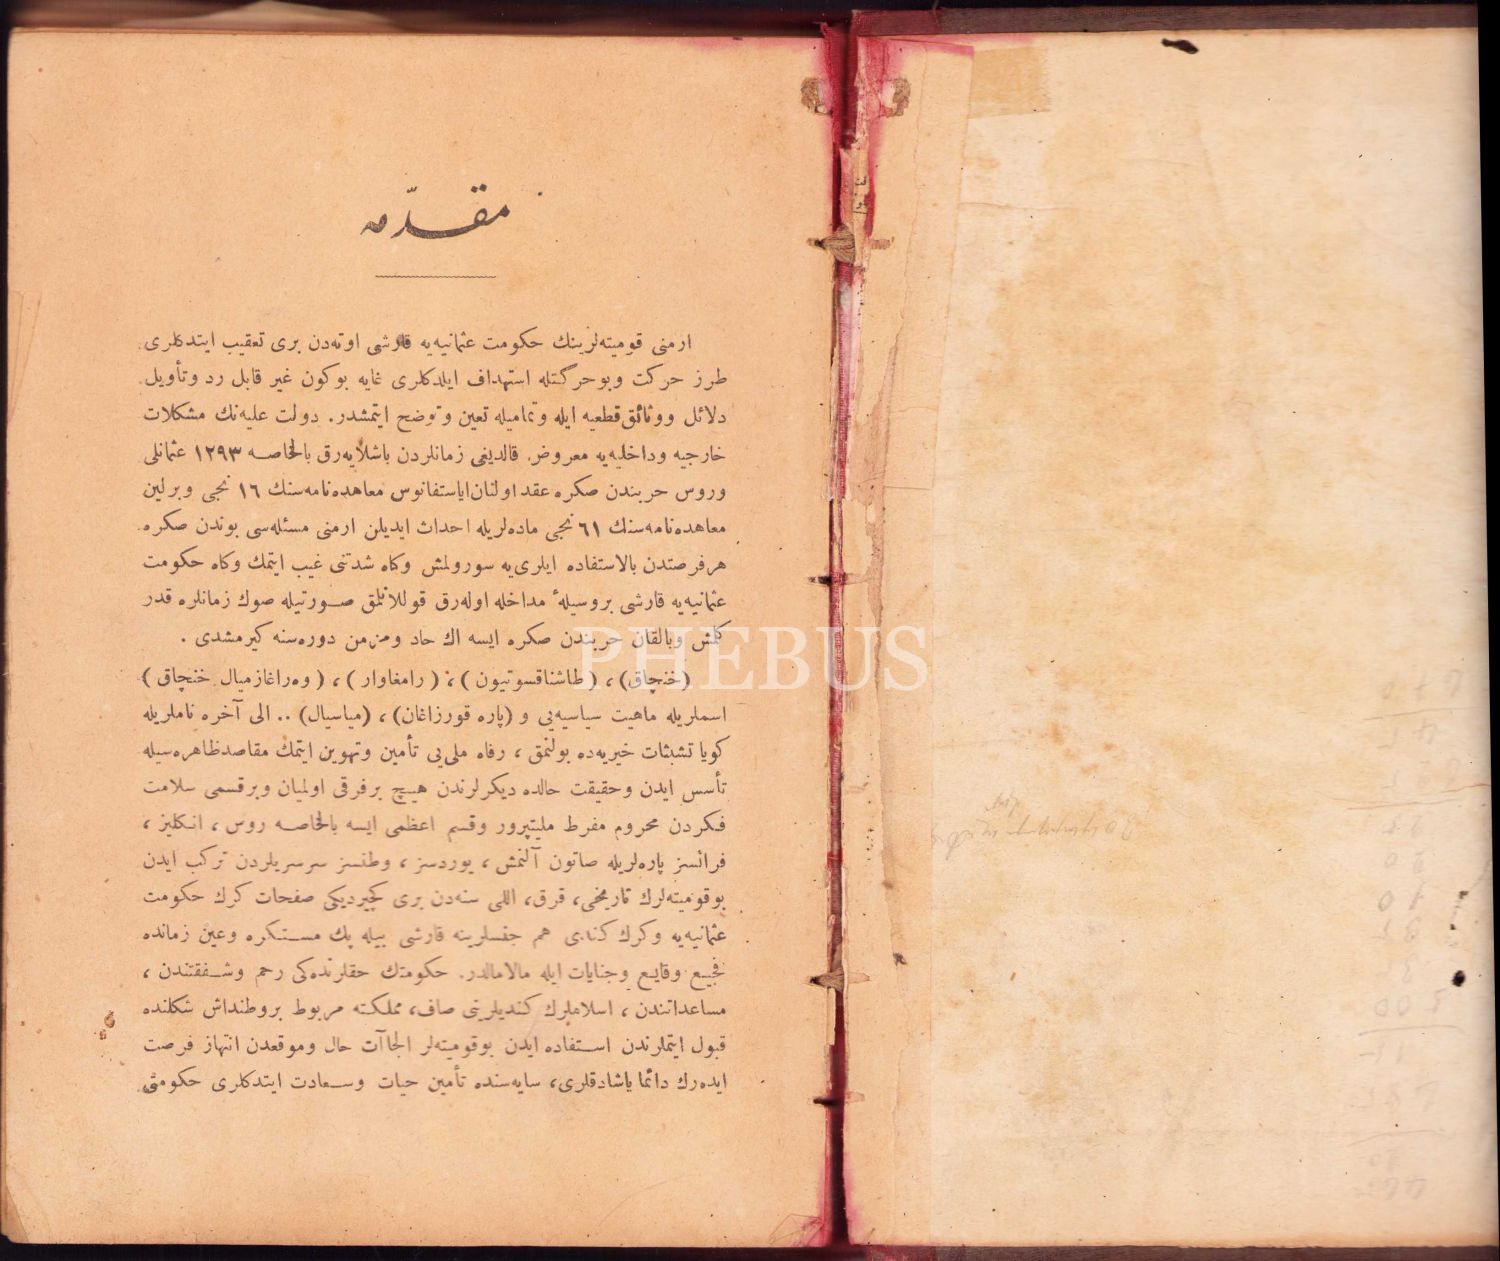 مقدّمه
ارمنى قوميته‌لرينك حكومت عثمانيه‌يه قارشى اوته‌دن برى تعقيب ايتدكلرى
طرز حركت وبو حركتله استهداف ايلدكلرى غايه بوكون غير قابل رد وتأويل
دلائل ووثائق قطعيه ايله وتماميله تعين وتوضح ايتمشدر. دولت عليه‌نك مشكلات
خارجيه وداخليه‌يه معروض قالديغى زمانلردن باشلايه‌رق بالخاصه ١٢٩٣ عثمانلى
وروس حربندن صكره عقد اولنان اياستفانوس معاهده‌نامه‌سنك ١٦ نجى وبرلين
معاهده‌نامه‌سنك ٦١ نجى ماده‌لريله احداث ايديلن ارمنى مسئله‌سى بوندن صكره
هر فرصتدن بالاستفاده ايلرى‌يه سورولمش وكاه شدتنى غيب ايتمك وكاه حكومت
عثمانيه‌يه قارشى بر وسيلهٔ مداخله اوله‌رق قوللانلمق صورتيله صوك زمانلره قدر
كلمش وبالقان حربندن صكره ايسه اك حاد ومزمن دوره‌سنه كيرمشدى .
(خنچاق) ، (طاشناقسوتيون) ، (رامغاوار) ، (وه‌راغازميال خنچاق)
اسملريله ماهيت سياسيه‌يى و (پاره قورزاغان) ، (مياسيال) .. الى آخره ناملريله
كويا تشبثات خيريه‌ده بولنمق ، رفاه ملى‌يى تأمين وتهوين ايتمك مقاصد ظاهره‌سيله
تأسس ايدن وحقيقت حالده ديكرلرندن هيچ بر فرقى اولميان وبر قسمى سلامت
فكردن محروم مفرط مليتپرور وقسم اعظمى ايسه بالخاصه روس ، انكليز ،
فرانسز پاره‌لريله صاتون آلنمش ، يوردسز ، وطنسز سرسريلردن تركب ايدن
بو قوميته‌لرك تاريخى ، قرق ، اللى سنه‌دن برى كچيرديكى صفحات كرك حكومت
عثمانيه‌يه وكرك كندى هم جنسلرينه قارشى بيله پك مستكره وعين زمانده
فجيع وقايع وجنايات ايله مالامالدر. حكومتك حقلرنده‌كى رحم وشفقتندن ،
مساعداتندن ، اسلاملرك كنديلرينى صاف ، مملكته مربوط بر وطنداش شكلنده
قبول ايتملرندن استفاده ايدن بو قوميته‌لر الجاآت حال وموقعدن انتهاز فرصت
ايده‌رك دائما ياشادقلرى ، سايه‌سنده تأمين حيات وسعادت ايتدكلرى حكومتى
PHEBUS